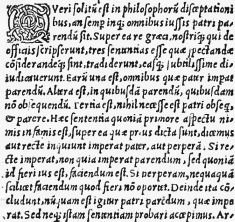 Queri solitũ est in philosophorũ disceptationi
bus, an semp inq; omnibus iussis patri pa-
rendũ sit. Super ea re græci, nostriq; qui de
officijs scripserunt, tres sententias esse quæ spectandæ
cõsiderandæq; sint, tradiderunt, easq; subtilissime di-
iudicauerunt. Earũ una est, omnibus quæ pater impat
parendũ. Altera est, in quibusdã parendũ, quibusdam
nõ obsequendũ. Tertia est, nihil necesse est patri obseq,
et parere. Hæc sententia quoniã primore aspectu ni-
mis infamis est, super ea quæ prius dicta sunt, dicemus
aut recte inquiunt imperat pater, aut perperã. Si re-
cte imperat, non quia imperat parendum, sed quoniã
id fieri ius est, faciendum est. Si perperam, nequaquã
scilicet faciendum quod fieri nõ oportet. Deinde ita cõ
cludunt, nũquam est igitur patri parendũ, quæ impe-
rat. Sed neq; istam sententiam probari accepimus. Ar-